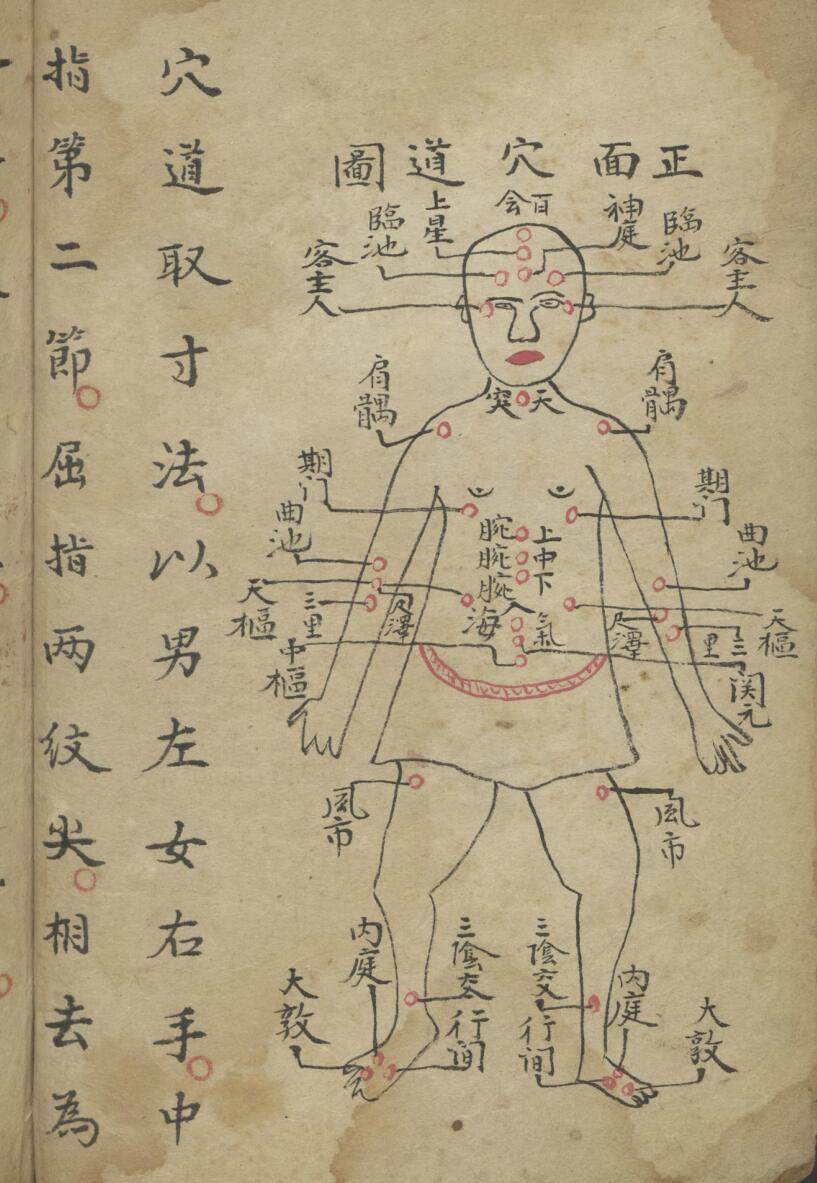 正面穴道圖
百会
神庭
上星
臨池
臨池
客主人
客主人
天突
肩髃
肩髃
期门
期门
曲池
曲池
上腕
中腕
下腕
氣海
天樞
天樞
三里
三里
尺澤
尺澤
関元
中樞
風市
風市
三陰交
三陰交
内庭
内庭
行间
行间
大敦
大敦
穴道取寸法。以男左女右手。中
指第二節。屈指两纹尖。相去為